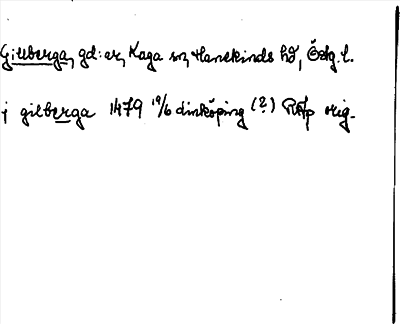 Gillberga, gd:ar, Kaga sn, Hanekinds hd, Östg. l.
j gilberga 1479 19/6 Linköping (?) RAp orig.